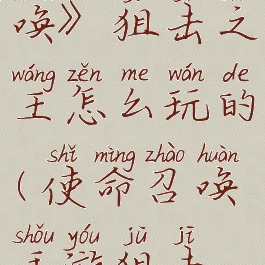 唤》狙击之
wáng zěn me wán de
王怎么玩的
shǐ mìng zhào huàn
（使命召唤
shǒu yóu jū jī
手游狙击